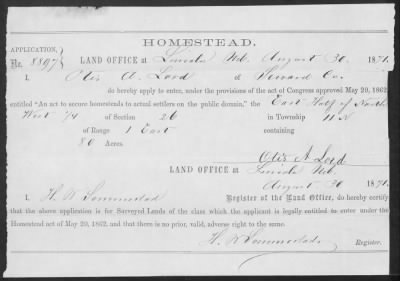 HOMESTEAD.
APPLICATION,
No. 8897
LAND OFFICE at Lincoln Neb. August 30, 1871.
I, Otis A. Lord of Seward Co.
do hereby apply to enter, under the provisions of the act of Congress approved May 20, 1862,
entitled "An act to secure homesteads to actual settlers on the public domain," the East Half of North
West 1/4 of Section 26 in Township 11 N
of Range 1 East containing
80 Acres.
Otis A Lord
LAND OFFICE at Lincoln Neb.
August 30 1871.
I, H. W. Register of the Land Office, do hereby certify
that the above application is for Surveyed Lands of the class which the applicant is legally entitled to enter under the
Homestead act of May 20, 1862, and that there is no prior, valid, adverse right to the same.
H. W Register.